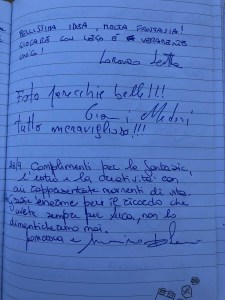 BELLISSIMA IDEA, MOLTA FANTASIA!
GIOCARE CON LEGO È VERAMENTE
UNICO!
Lorenzo
Foto parecchie belle!!!
Gianni
Tutto meraviglioso!!!
Complimenti per la fantasia,
l'estro e la creatività con
cui rappresentate momenti di vita.
Grazie enorme per il ricordo che
avete sempre per Luca, non lo
dimenticheremo mai.
Francesca e